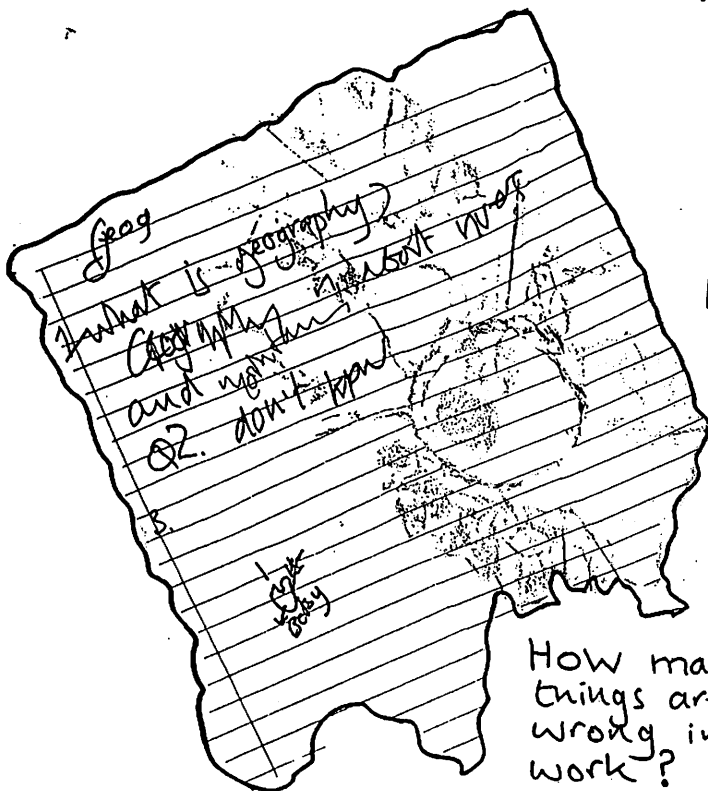 Geog
1 What is geography?
Geography is about
and
Q2. don't
3.
HOW ma
things ar
wrong in
work?